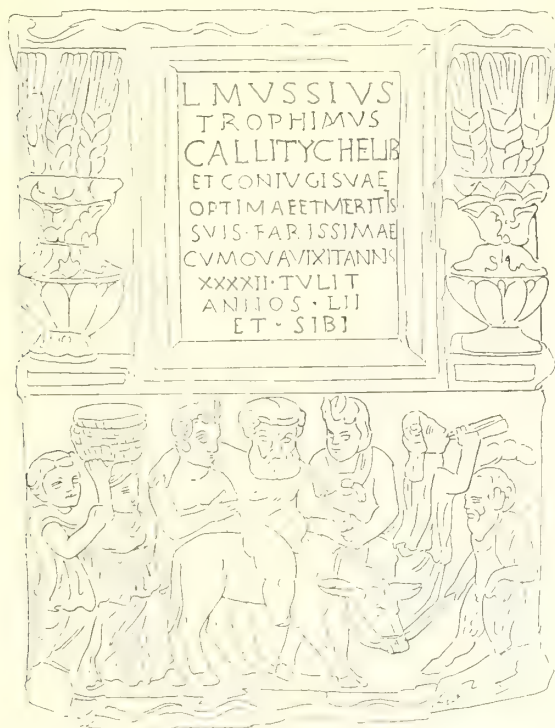 L MVSSIVS
TROPHIMVS
CALLITYCHELIB
ET CONIVGI SVAE
OPTIMAE ET MERITIS
SVIS·FARISSIMAE
CVMQVAVIXITANNS
XXXXII·TVLIT
ANIIOS·LII
ET·SIBI